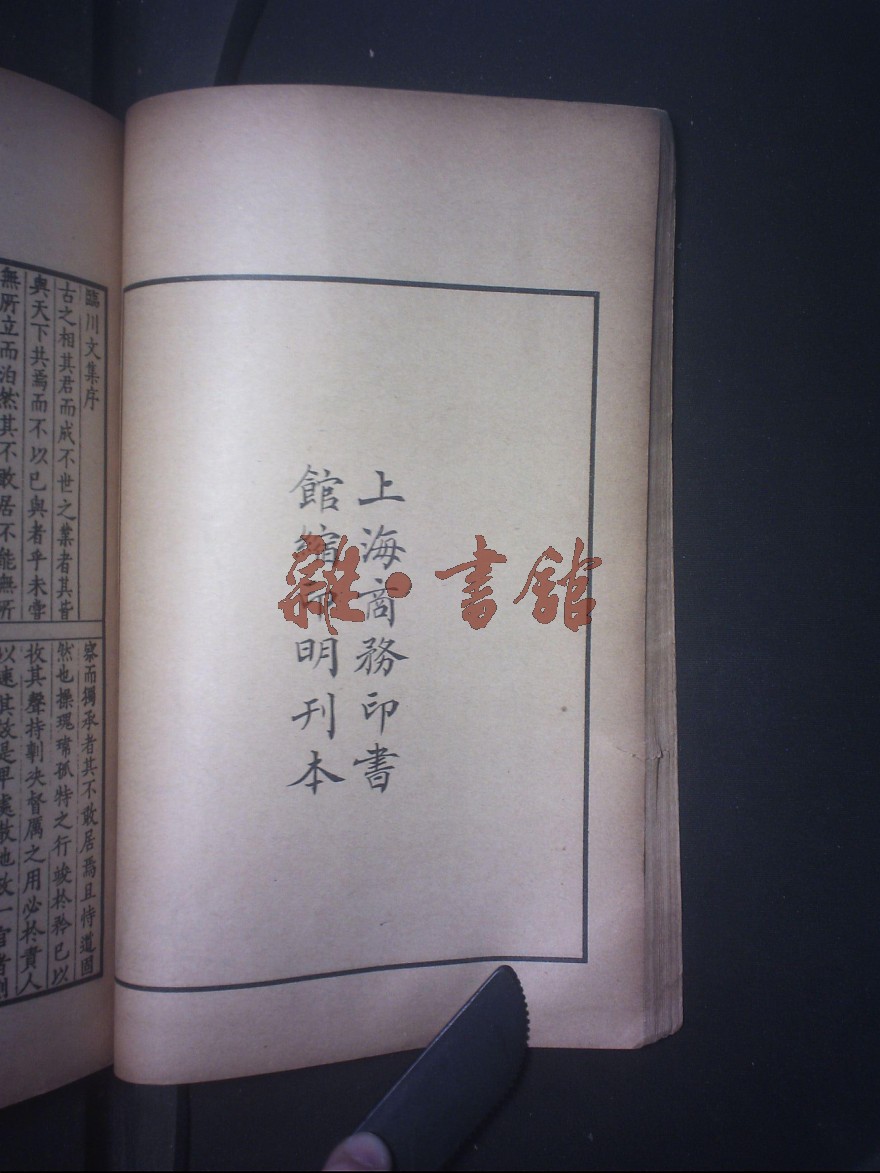 上海商務印書
館縮印明刊本
雜·書館
臨川文集序
古之相其君而成不世之業者其皆
與天下共焉而不以已與者乎未嘗
無所立而泊然其不敢居不能無所
察而獨承者其不敢居焉且恃道固
然也操瑰瑋孤特之行峻於矜已以
故其聲持剸決督厲之用必於責人